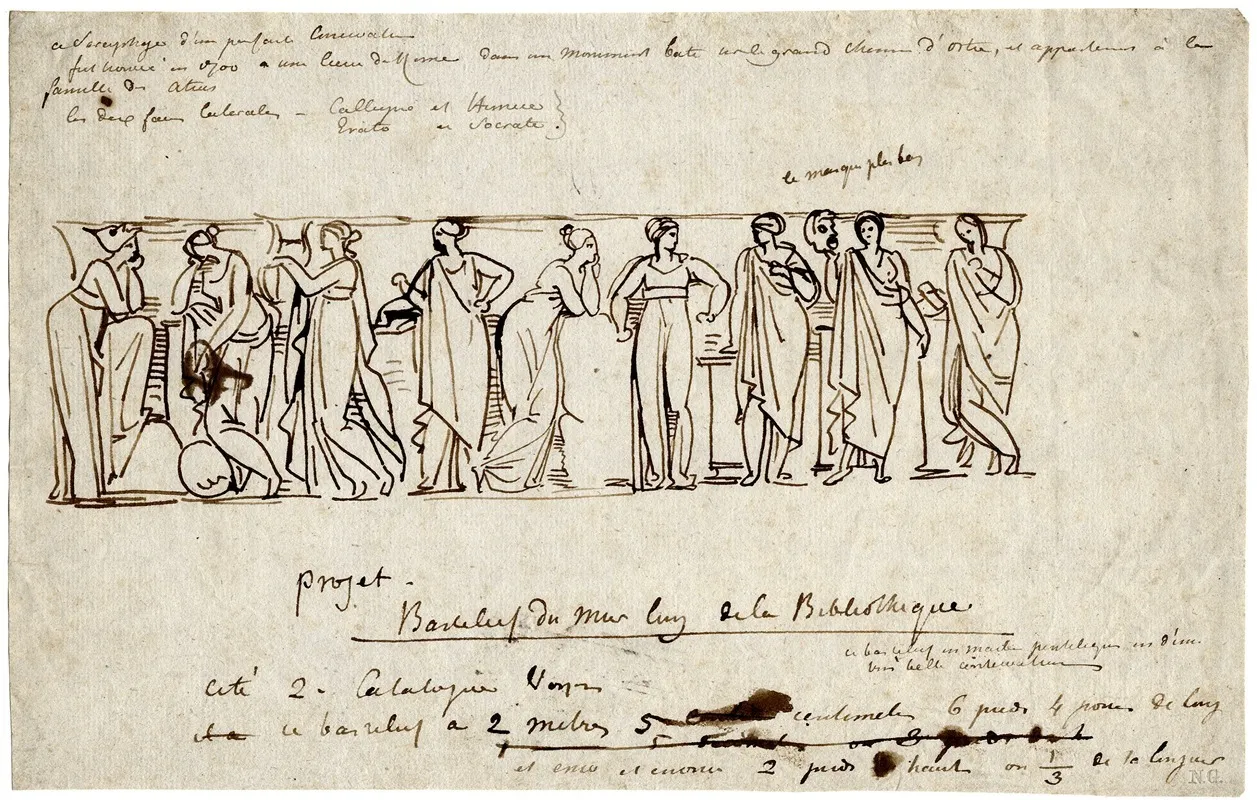 ce Sarcophage d'un parfait
fut trouvé en 1700 a une lieue de Rome dans un monument bati sur le grand chemin d'ostie, et appartenus à la
famille des atius
les deux faces laterales - Calliope et Homere
Erato et Socrate
le masque plus bas
projet -
Basrelief du mur long de la Bibliothèque
ce basrelief en marbre pentelique en d'une
belle conservation
coté 2 - Catalogue
ce basrelief a 2 metres 5 centimetres 6 pieds 4 pouces de long
et et environ 2 pieds haut ou 1/3 de sa longueur
N.G.